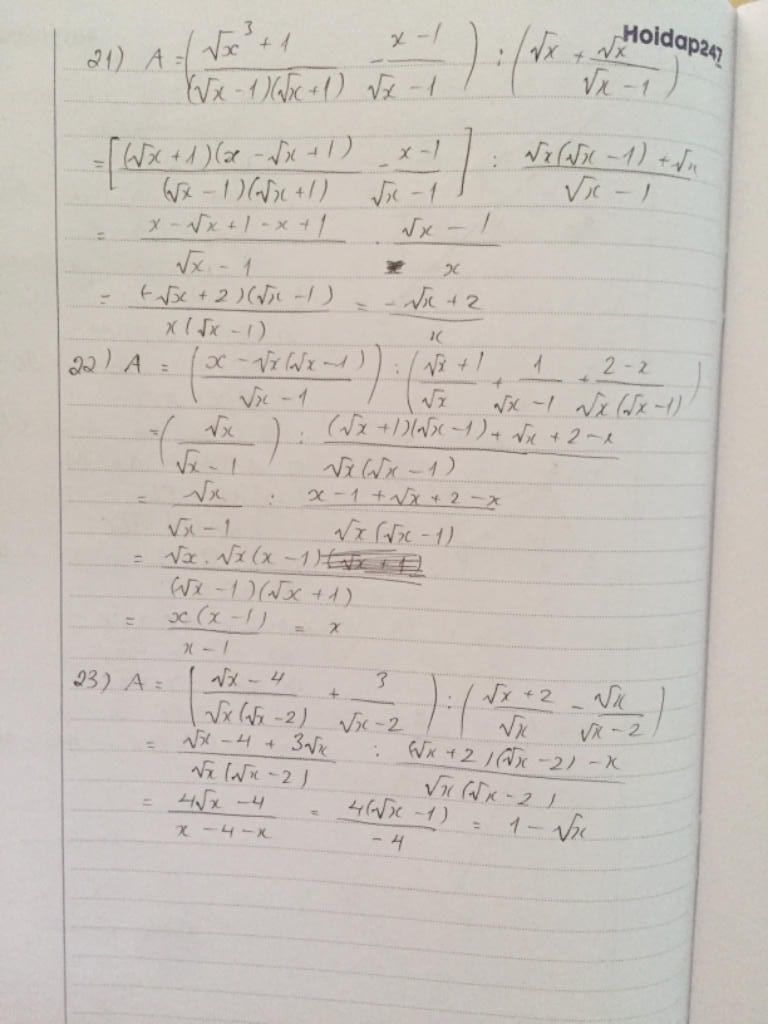 Hoidap247
21) A = ( (√x³ + 1)/((√x - 1)(√x + 1)) - (x - 1)/(√x - 1) ) : ( √x + √x/(√x - 1) )
= [ ((√x + 1)(x - √x + 1))/((√x - 1)(√x + 1)) - (x - 1)/(√x - 1) ] : (√x(√x - 1) + √x)/(√x - 1)
= (x - √x + 1 - x + 1)/(√x - 1) . (√x - 1)/x
= ((-√x + 2)(√x - 1))/(x(√x - 1)) = (-√x + 2)/x
22) A = ( (x - √x(√x - 1))/(√x - 1) ) : ( (√x + 1)/√x + 1/(√x - 1) + (2 - x)/(√x(√x - 1)) )
= ( √x/(√x - 1) ) : ((√x + 1)(√x - 1) + √x + 2 - x)/(√x(√x - 1))
= √x/(√x - 1) : (x - 1 + √x + 2 - x)/(√x(√x - 1))
= (√x . √x(x - 1))/((√x - 1)(√x + 1))
= (x(x - 1))/(x - 1) = x
23) A = ( (√x - 4)/(√x(√x - 2)) + 3/(√x - 2) ) : ( (√x + 2)/√x - √x/(√x - 2) )
= (√x - 4 + 3√x)/(√x(√x - 2)) : ((√x + 2)(√x - 2) - x)/(√x(√x - 2))
= (4√x - 4)/(x - 4 - x) = (4(√x - 1))/(-4) = 1 - √x